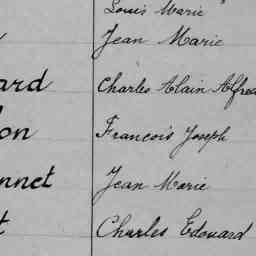 Louis Marie
Jean Marie
ard Charles Alain Alfred
on François Joseph
nnet Jean Marie
t Charles Edouard